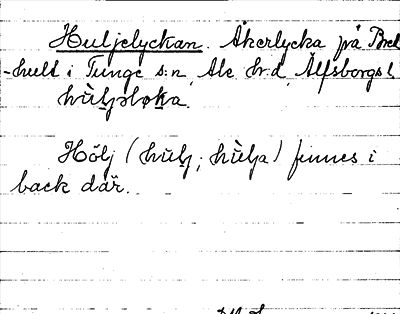 Huljelyckan. Åkerlycka på Bred
-hult i Tunge s:n, Ale hrd, Älfsborgs l.

Hölj (hulj; hùlja) finnes i
back där.